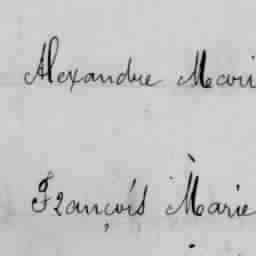 Alexandre Mari
François Marie